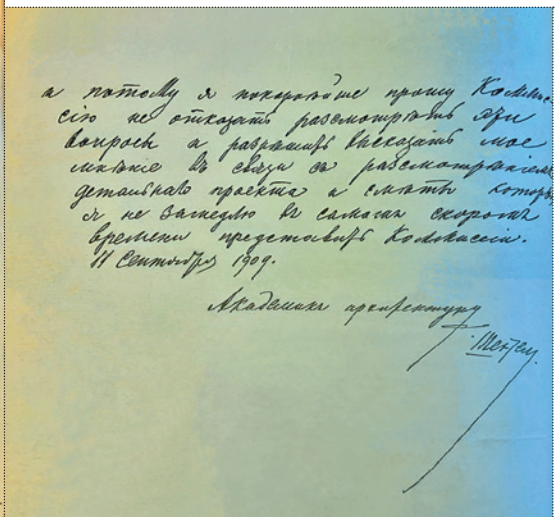 а потому я покорнѣйше прошу Коммис-
сію не отказать разсмотрѣть эти
вопросы и разрѣшить высказать мое
мнѣніе въ связи съ разсмотрѣніемъ
детальнаго проекта и смѣты которы
я не замедлю въ самомъ скоромъ
времени представить Коммиссіи.
11 Сентября 1909.
Академикъ архитектуры
Ф. Шехтел